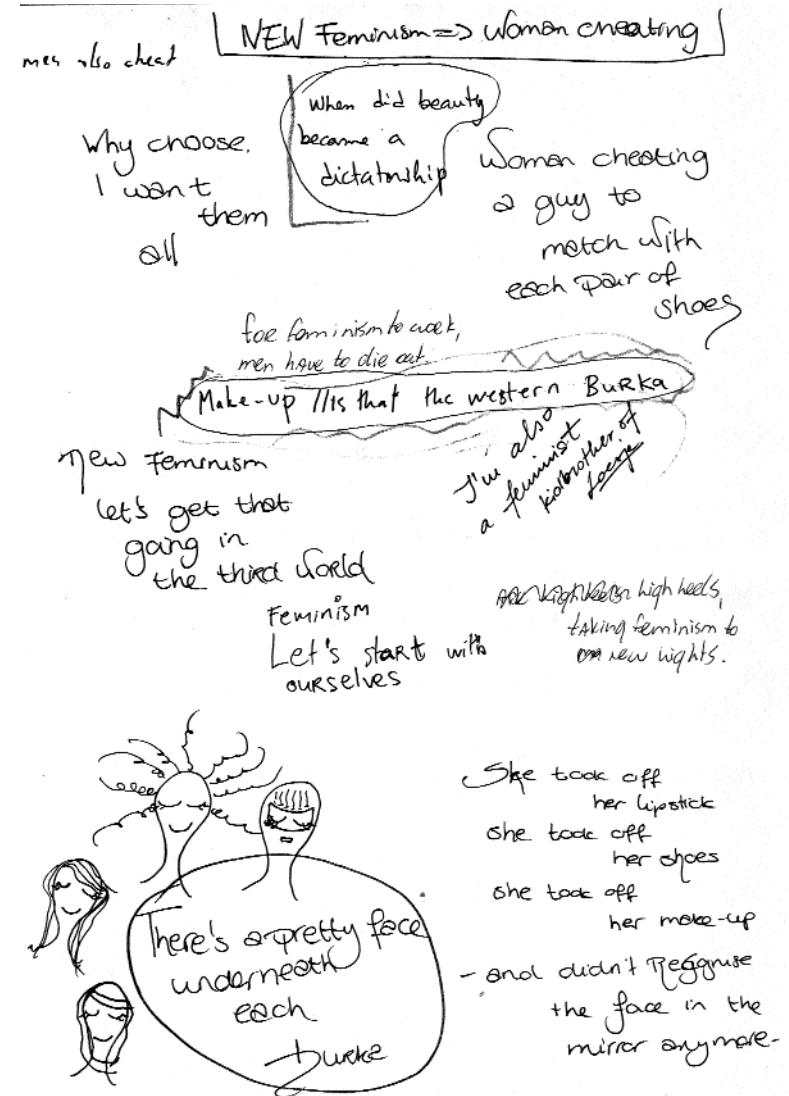 NEW Feminism => Woman cheating
men also cheat
When did beauty
became a
dictatorship
Why choose.
I want
them
all
Woman cheating
a guy to
match with
each pair of
shoes
for feminism to work,
men have to die out.
Make-up // is that the western BURKA
I'm also
a feminist
kidbrother of
New Feminism
Let's get that
going in
the third world
Feminism
Let's start with
ourselves
high heels,
taking feminism to
new hights.
She took off
her lipstick
she took off
her shoes
she took off
her make-up
- and didn't Recognise
the face in the
mirror anymore-
There's a pretty face
underneath
each
burka